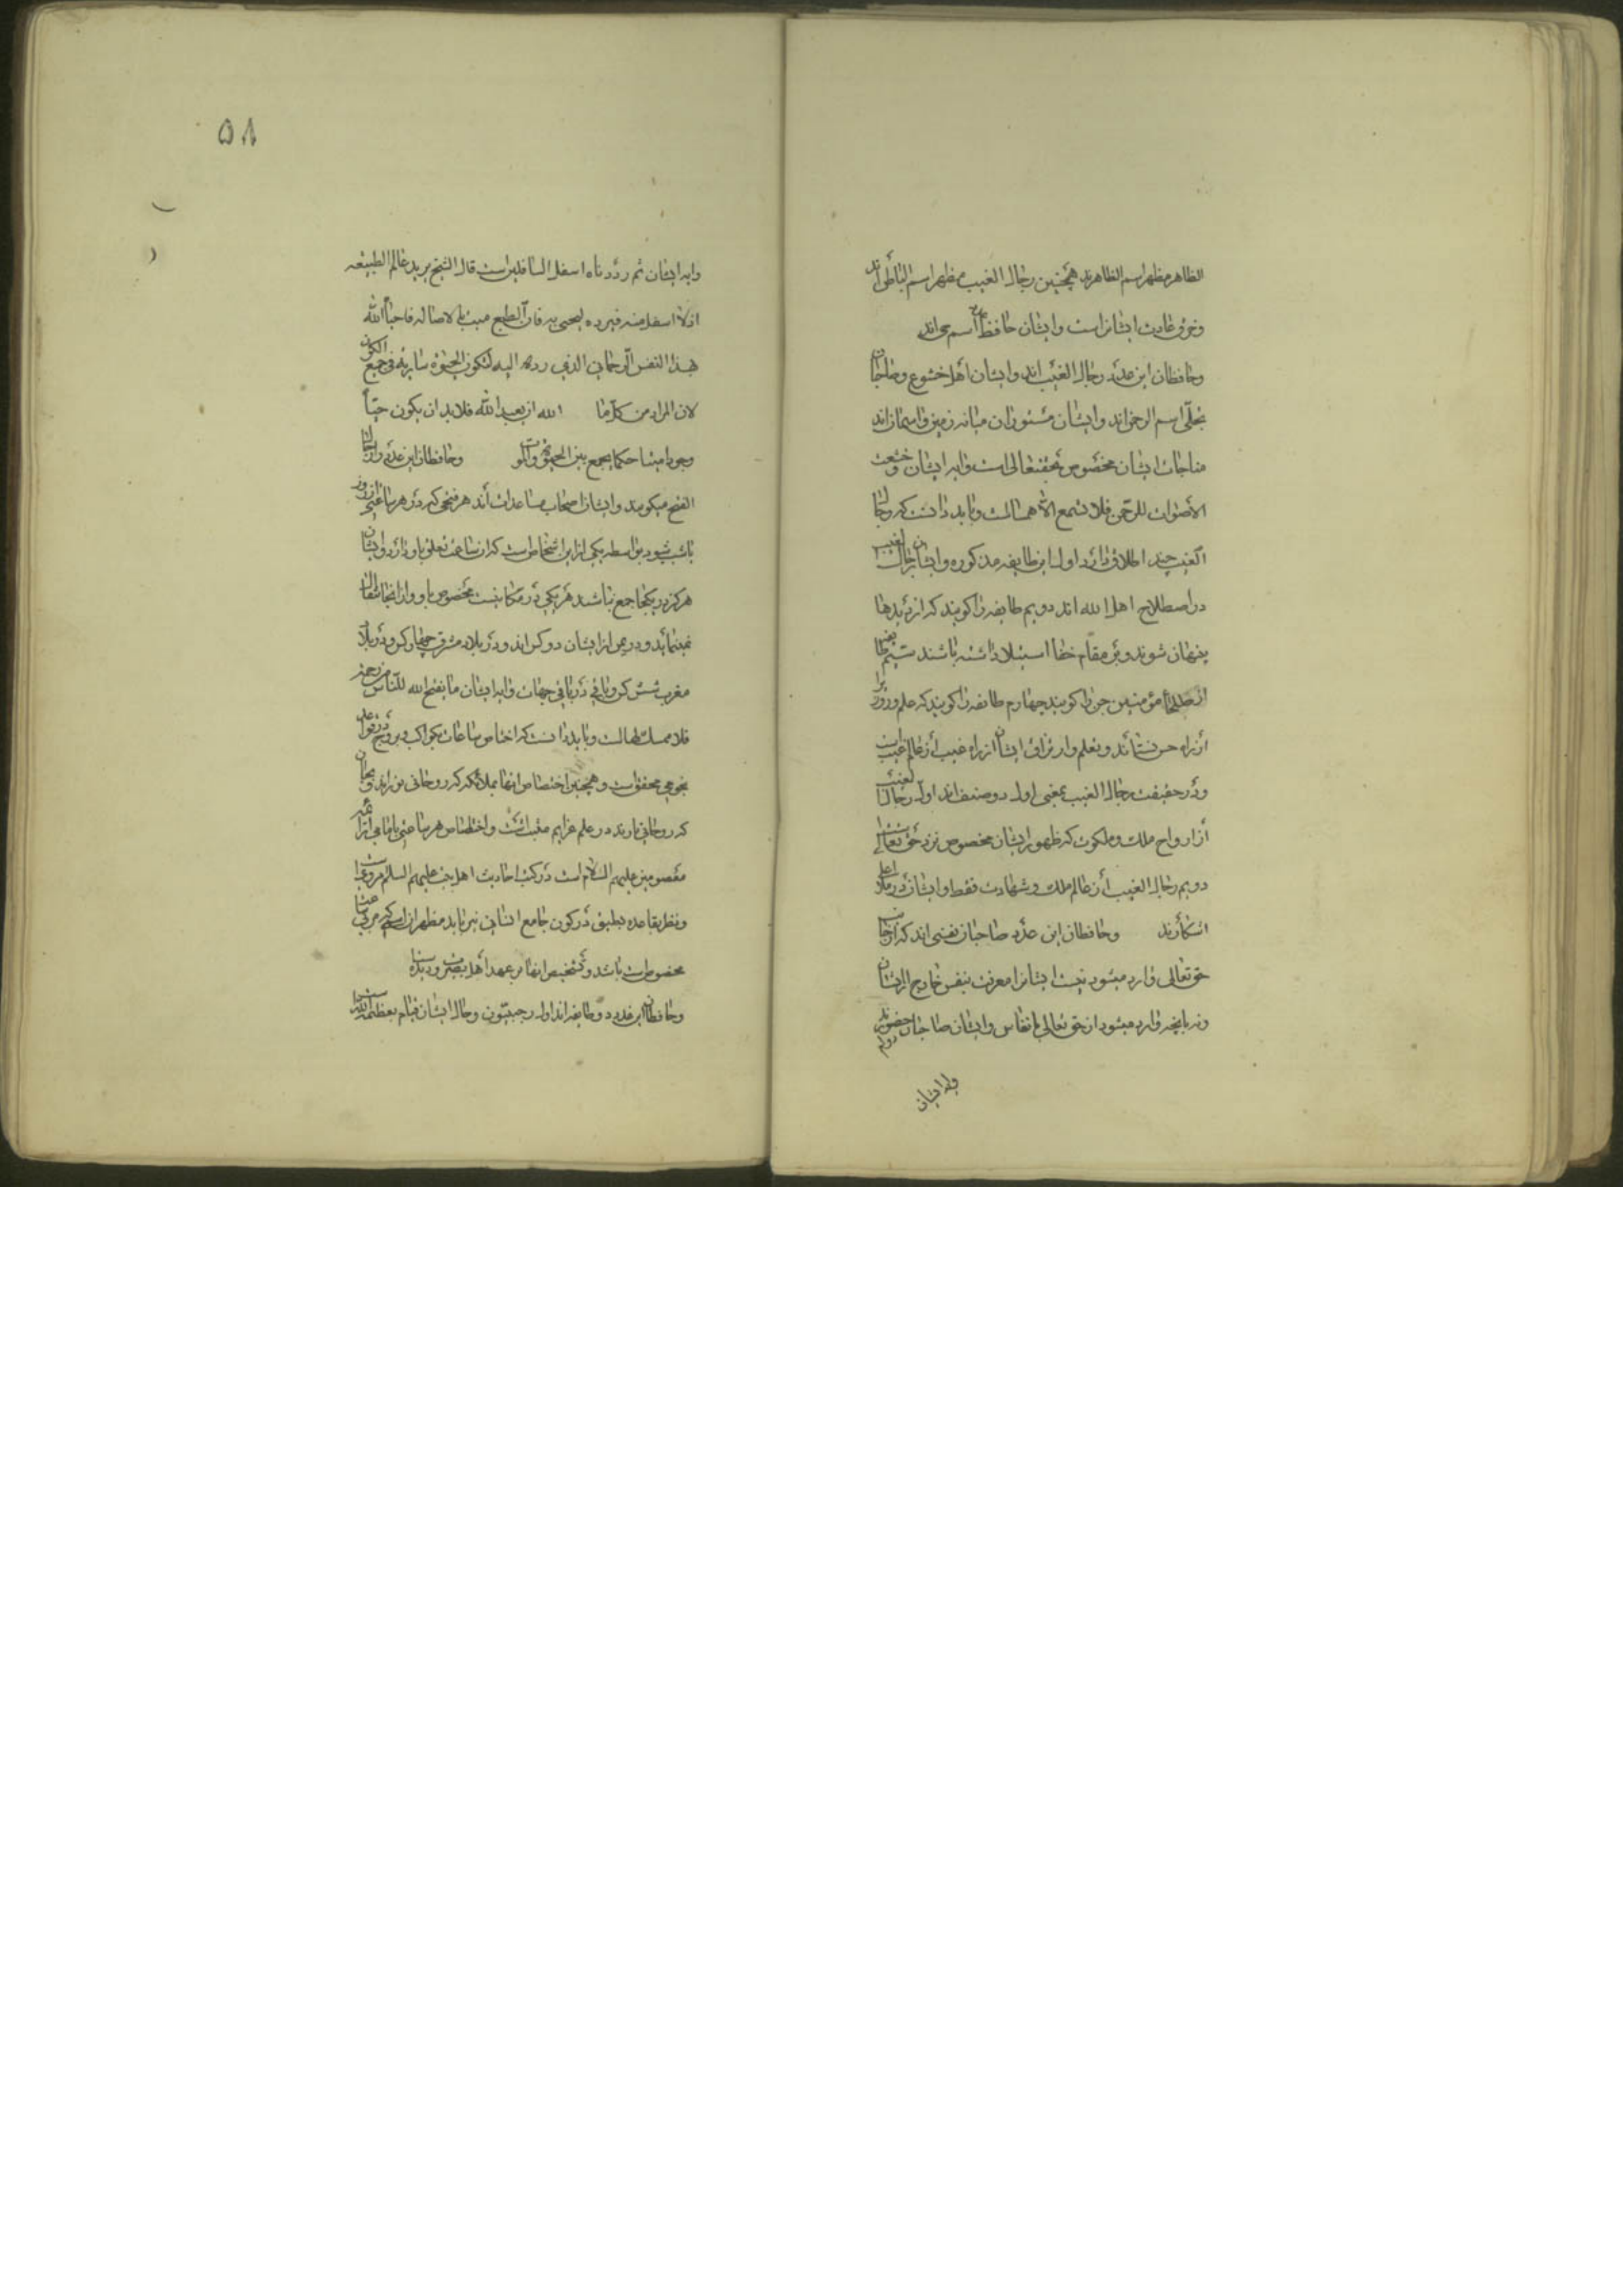 الظاهر مظهر اسم الظاهرند همچنین رجال الغیب مظهر اسم الباطن اند
و خرق عادت ایشانراست و ایشان حافظ اسم حی اند
و حافظان این عدد رجال الغیب اند و ایشان اهل خشوع و صاحبان
تجلّی اسم الرحمن اند و ایشان مستوران میانه زمین و آسمان اند
مناجات ایشان مخصوص بحقتعالی است و آیه ایشان و خشعت
الأصوات للرحمن فلا تسمع الا همسا است و باید دانست که رجال
الغیب چند اطلاق دارد اول این طایفه مذکوره و ایشان رجال الغیب
در اصطلاح اهل الله اند دویم طایفه را گویند که از دیدها
پنهان شوند و بر مقام خفا استیلا داشته باشند سیّم طایفه
از صلحا مؤمنین جن را گویند چهارم طایفه را گویند که علم و رزق را
از راه حس نستانند و تعلم و ارتزاق ایشان از راه غیب از عالم غیب است
و در حقیقت رجال الغیب بمعنی اول دو صنف اند اول رجال الغیب
از ارواح ملک و ملکوت که ظهور ایشان مخصوص نزد حق تعالی است
دویم رجال الغیب از عالم ملک و شهادت فقط و ایشان در ملأ اعلی
آشکارند و حافظان این عدد صاحبان نفسی اند که از جانب
حق تعالی وارد میشود نیست ایشانرا معرفت بنفس خارج از ایشان
و نه بانچه وارد میشود از حق تعالی بانفاس و ایشان صاحبان حضورند دوام
وآیه ایشان
۵۸
وآیه ایشان ثم رددناه اسفل السافلین است قال الشیخ یرید عالم الطبیعه
اذ لا اسفل منه فیرده لیحیی به فان الطبع میت بالاصاله فاحیاه الله
بهذا النفس الرحمانی الذی رده الیه لتکون الحیوة ساریة فی جمیع الکون
لان المراد من کل ما الله ان یعبد الله فلابد ان یکون حیّاً
وجودا میتا حکما یجمع بین الحیوة والموت و حافظان این عدد رجال
الفتح میگویند و ایشان اصحاب ساعات اند هر فتحی که در هر ساعتی از روز
یا شب شود بواسطه یکی از این اشخاص است که از ساعت تعلق باو دارد و ایشان
هرگز در یکجا جمع نباشند هر یکی در مکانیست مخصوص باو و از آنجا انتقال
نمینماید و در یمن از ایشان دو کس اند و در بلاد مشرق چهار کس و در بلاد
مغرب شش کس و باقی در باقی جهات و آیه ایشان ما یفتح الله للناس من رحمة
فلا ممسک لها است و باید دانست که اختصاص ساعات بکواکب و بروج در قواعد
نجومی محقق است و همچنین اختصاص آنها بملائکه که روحانی نورانی و
که روحانی نارند در علم عزایم مثبت است و اختصاص هر ساعتی بامامی از ائمه
معصومین علیهم السلام است در کتب احادیث اهل بیت علیهم السلام مروی است
و نظر بقاعده تطبیق در کون جامع انسانی نیز باید مظهر از اسمی که مربی ساعت
مخصوص است باشد و تشخیص آنها بر عهد اهل بصیرت و دیده است
و حافظان این عدد دو طایفه اند اول رجبیّون و حال ایشان قیام بعظمة الله است